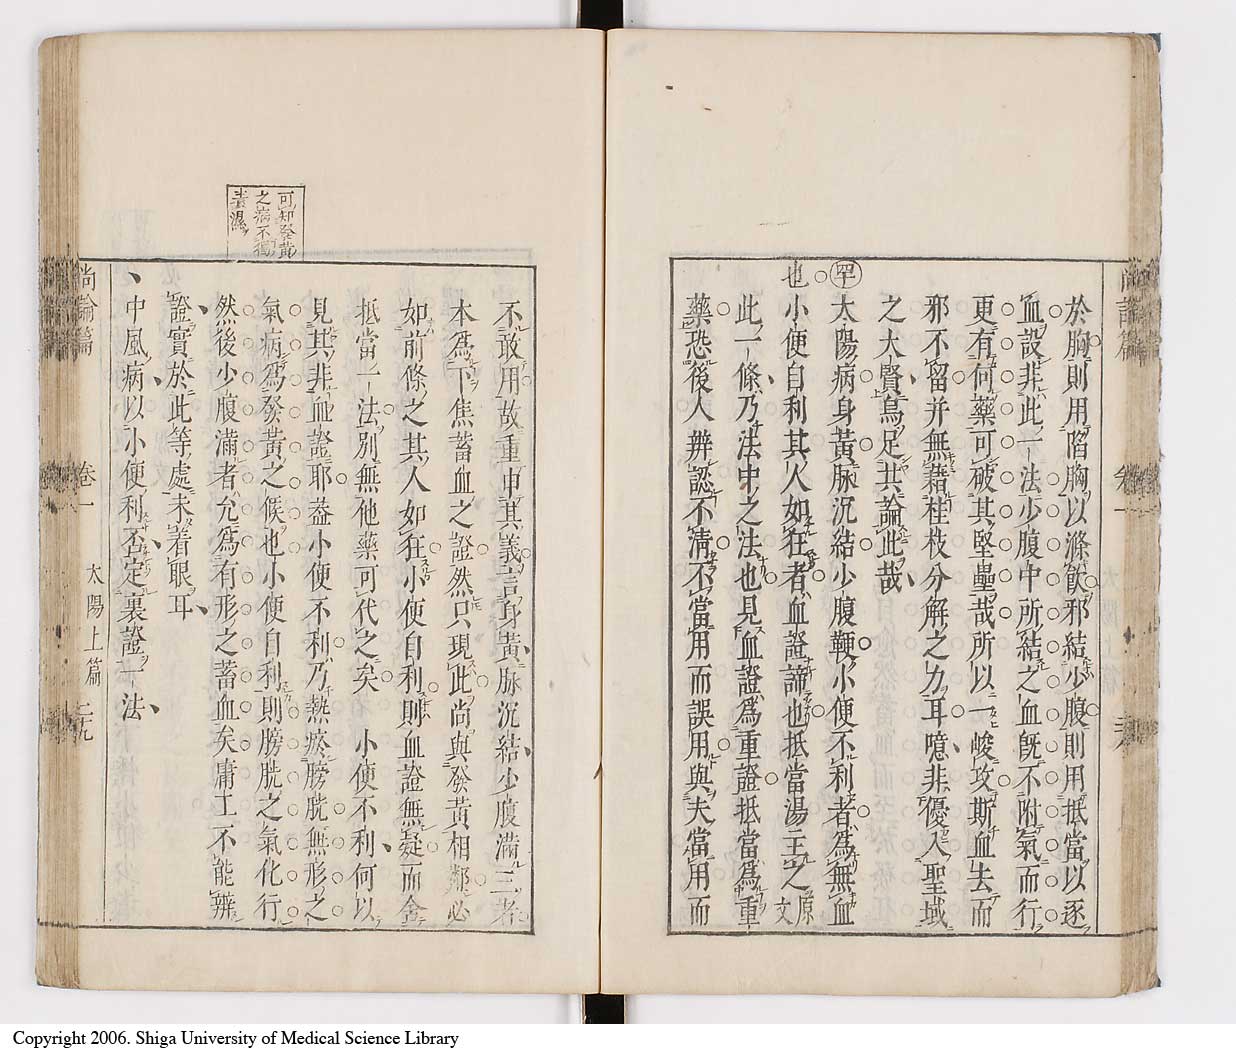 於胸則用陷胸以滌飲邪結少腹則用抵當以逐
血設非此一法少腹中所結之血既不附氣而行
更有何藥可破其堅壘哉所以一峻攻斯血去而
邪不留并無藉桂枝分解之力耳噫非優入聖域
之大賢烏足其論此哉
罕太陽病身黃脉沉結少腹鞕小便不利者為無血
也小便自利其人如狂者血證諦也抵當湯主之原文
此一條乃法中之法也見血證為重證抵當為重
藥恐後人辨認不清不當用而誤用與夫當用而
不敢用故重申其義言身黃脉沉結少腹滿三者
本為下焦蓄血之證然只現此尚與發黃相鄰必
如前條之其人如狂小便自利則血證無疑而舍
抵當一法別無他藥可代之矣 小便不利何以
見其非血證耶葢小便不利乃熱瘀膀胱無形之
氣病為發黃之候也小便自利則膀胱之氣化行
然後少腹滿者允為有形之蓄血矣庸工不能辨
證實於此等處未着眼耳
中風病以小便利否定裏證一法
可知發黃
之病不獨
責濕
尚論篇 卷一 太陽上篇 二十九
Copyright 2006. Shiga University of Medical Science Library